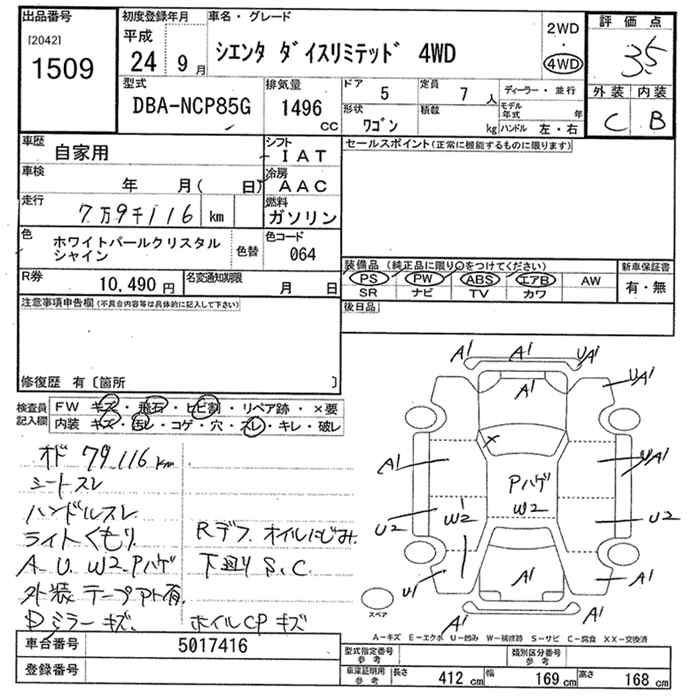 出品番号
[2042]
1509
初度登録年月
平成
24 9月
車名・グレード
シエンタ ダイスリミテッド 4WD
2WD
・
4WD
評価点
3.5
外装 内装
C B
型式
DBA-NCP85G
排気量
1496 cc
ドア 5
定員 7 人
形状
ワゴン
積数 kg
ディーラー・並行
モデル年式 年
ハンドル 左・右
車歴
自家用
シフト
IAT
車検
年 月( 日)
冷房
AAC
走行
7万9千116 km
燃料
ガソリン
色
ホワイトパールクリスタル
シャイン
色替
色コード
064
R券
10,490円
名変通知期限
月 日
セールスポイント(正常に機能するものに限ります)
装備品(純正品に限り○をつけてください)
PS PW ABS エアB AW
SR ナビ TV カワ
新車保証書
有・無
後日品
注意事項申告欄(不具合内容等は具体的に記入して下さい)
修復歴 有〔箇所 〕
検査員
記入欄
FW キズ・飛石・ヒビ割・リペア跡・×要
内装 キズ・汚レ・コゲ・穴・スレ・キレ・破レ
オド 79,116km
シートスレ
ハンドルスレ
ライトくもり
A.U.W2 Pハゲ
外装 テープアト有
Dミラーキズ
Rデフ オイルにじみ
下廻り S.C
ホイルCPキズ
A1 A1 UA1
A1 UA1
×
A1 UA1
Pハゲ
W2
U2 W2 U2
U1 A1 A1
A1
スペア
A-キズ E-エクボ U-凹み W-補修跡 S-サビ C-腐食 XX-交換済
車台番号 5017416
登録番号
型式指定番号
参考
類別区分番号
参考
車庫証明用
参考
長さ 412 cm 幅 169 cm 高さ 168 cm